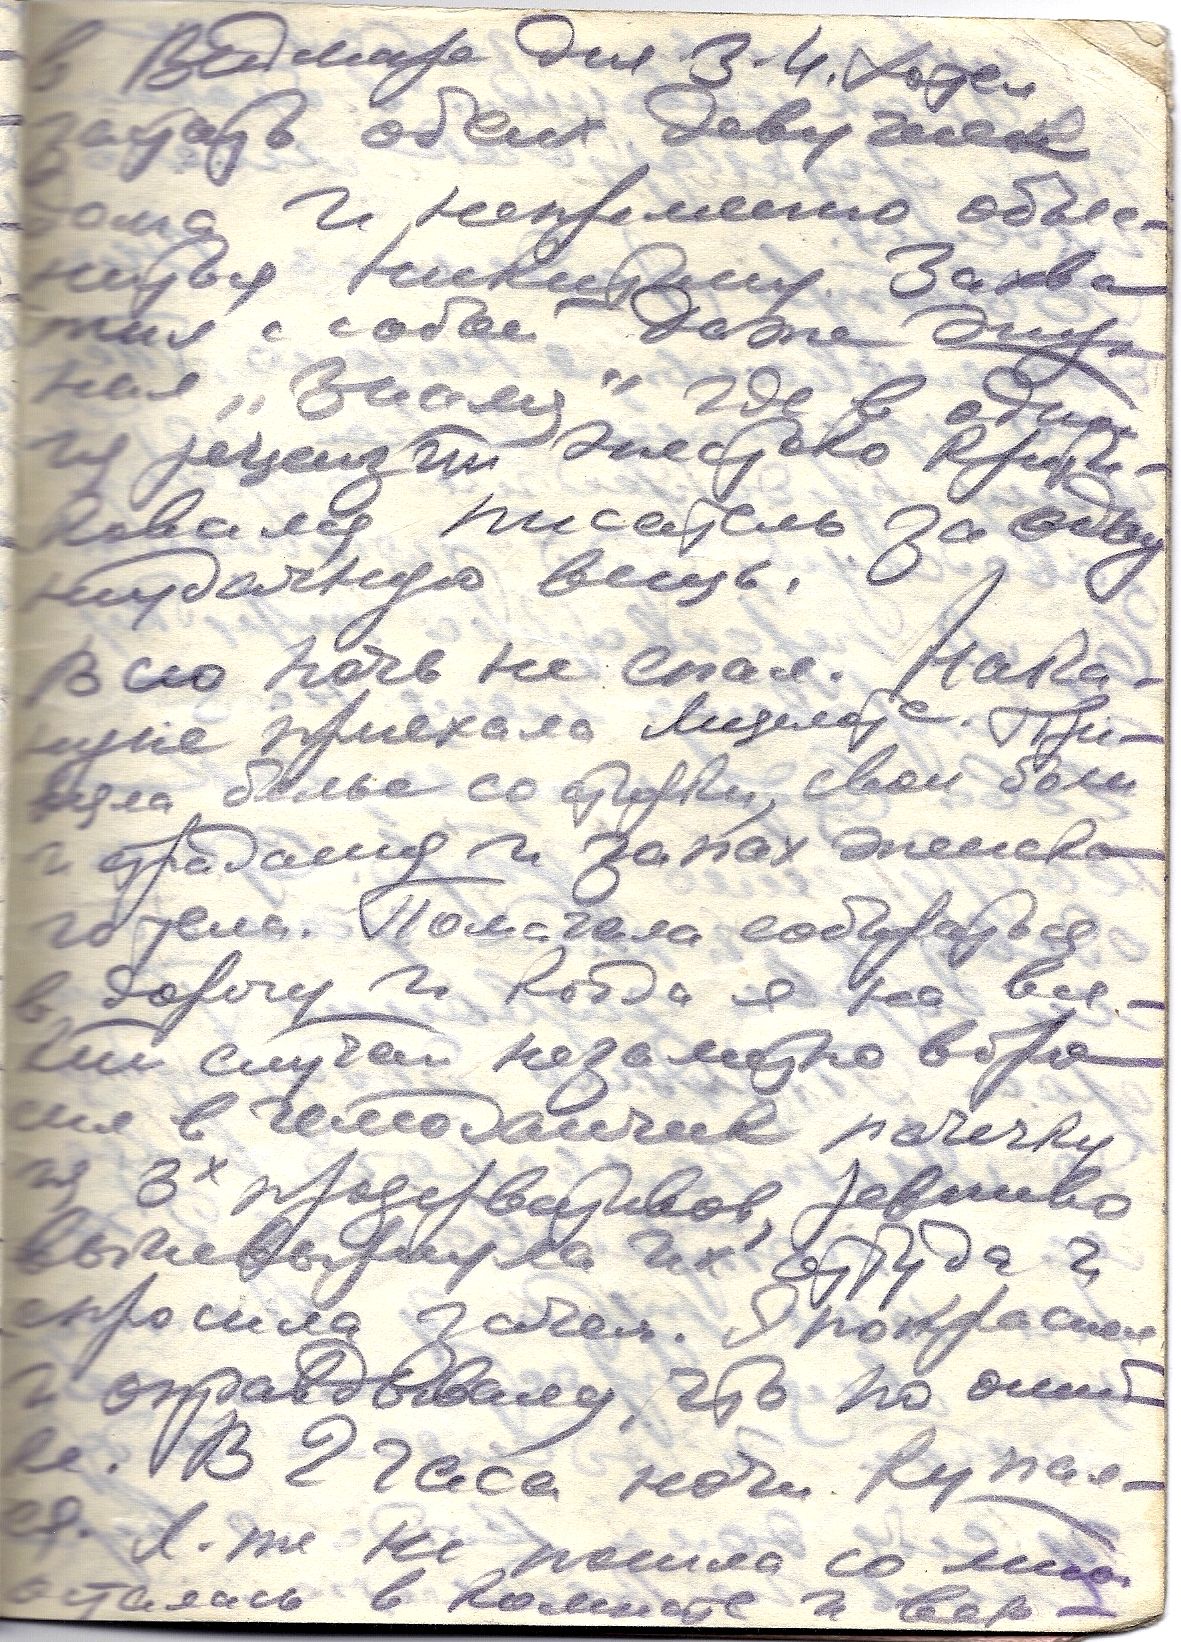 в Веймаре дня 3-4. Хотел
застать обеих девушек
дома и непременно объяс-
ниться Никитину. Захва-
тил с собой даже жур-
нал „Знамя" где в одной
из рецензий жестоко крити-
ковался писатель за одну
неудачную вещь.
Всю ночь не спал. Нака-
нуне приехала Лизелоте. При-
везла белье со стирки, свои боли
и страдания и запах женско-
го тела. Помогала собираться
в дорогу и когда я на вся-
кий случай незаметно вбро-
сил в чемоданчик пачечку
из 3х презервативов, ревниво
вышвырнула их оттуда и
спросила зачем. Я покраснел
и оправдывался, что по ошиб
ке. В 2 часа ночи купал-
ся. Л-те не пошла со мной
осталась в комнате и вер-